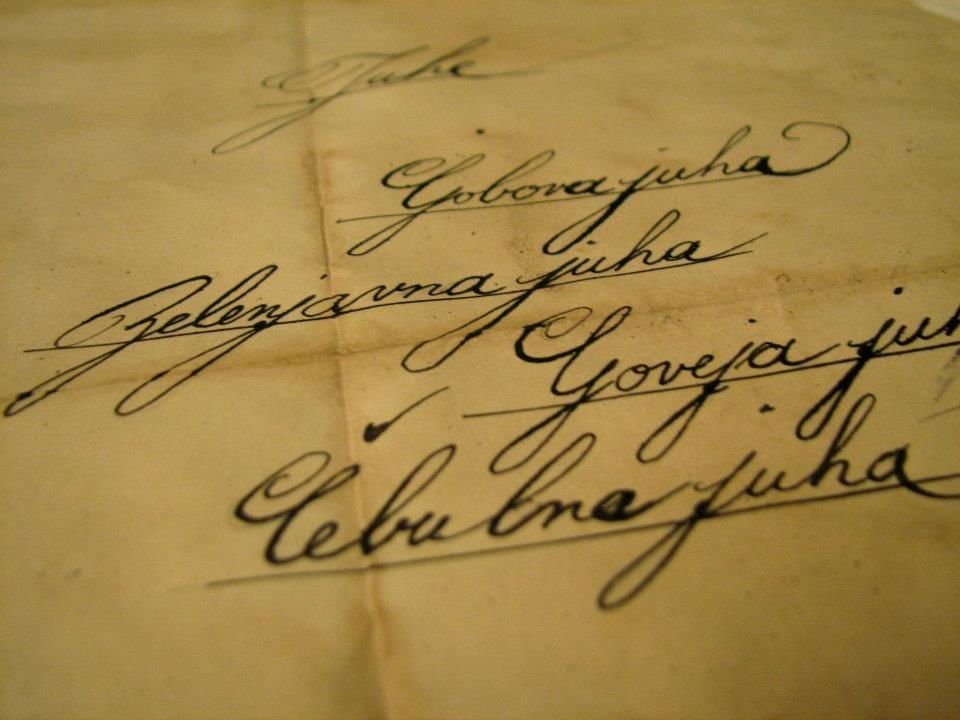 Juhe
Gobova juha
Zelenjavna juha
Goveja juh
Čebulna juha